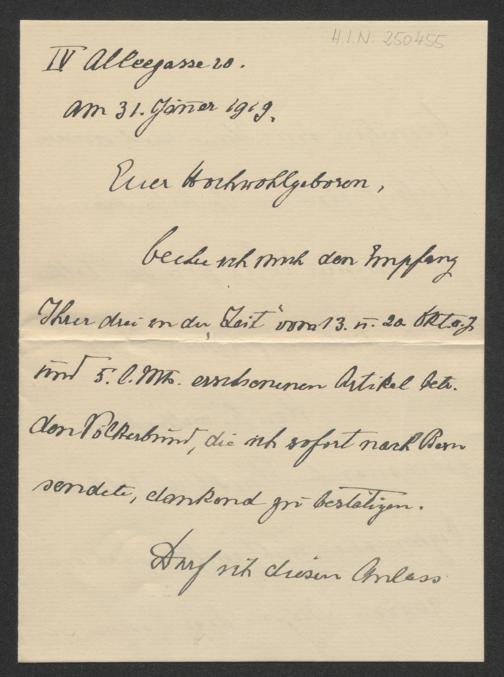 H.I.N. 250455
IV Alleegasse 20.
am 31. Jänner 1919.
Euer Hochwohlgeboren,
beehre ich mich den Empfang
Ihrer drei in der „Zeit" vom 13. u. 20. Okt. v. J.
und 5. l. Mts. erschienenen Artikel betr.
den Völkerbund, die ich sofort nach Bern
sendete, dankend zu bestätigen.
Darf ich diesen Anlass